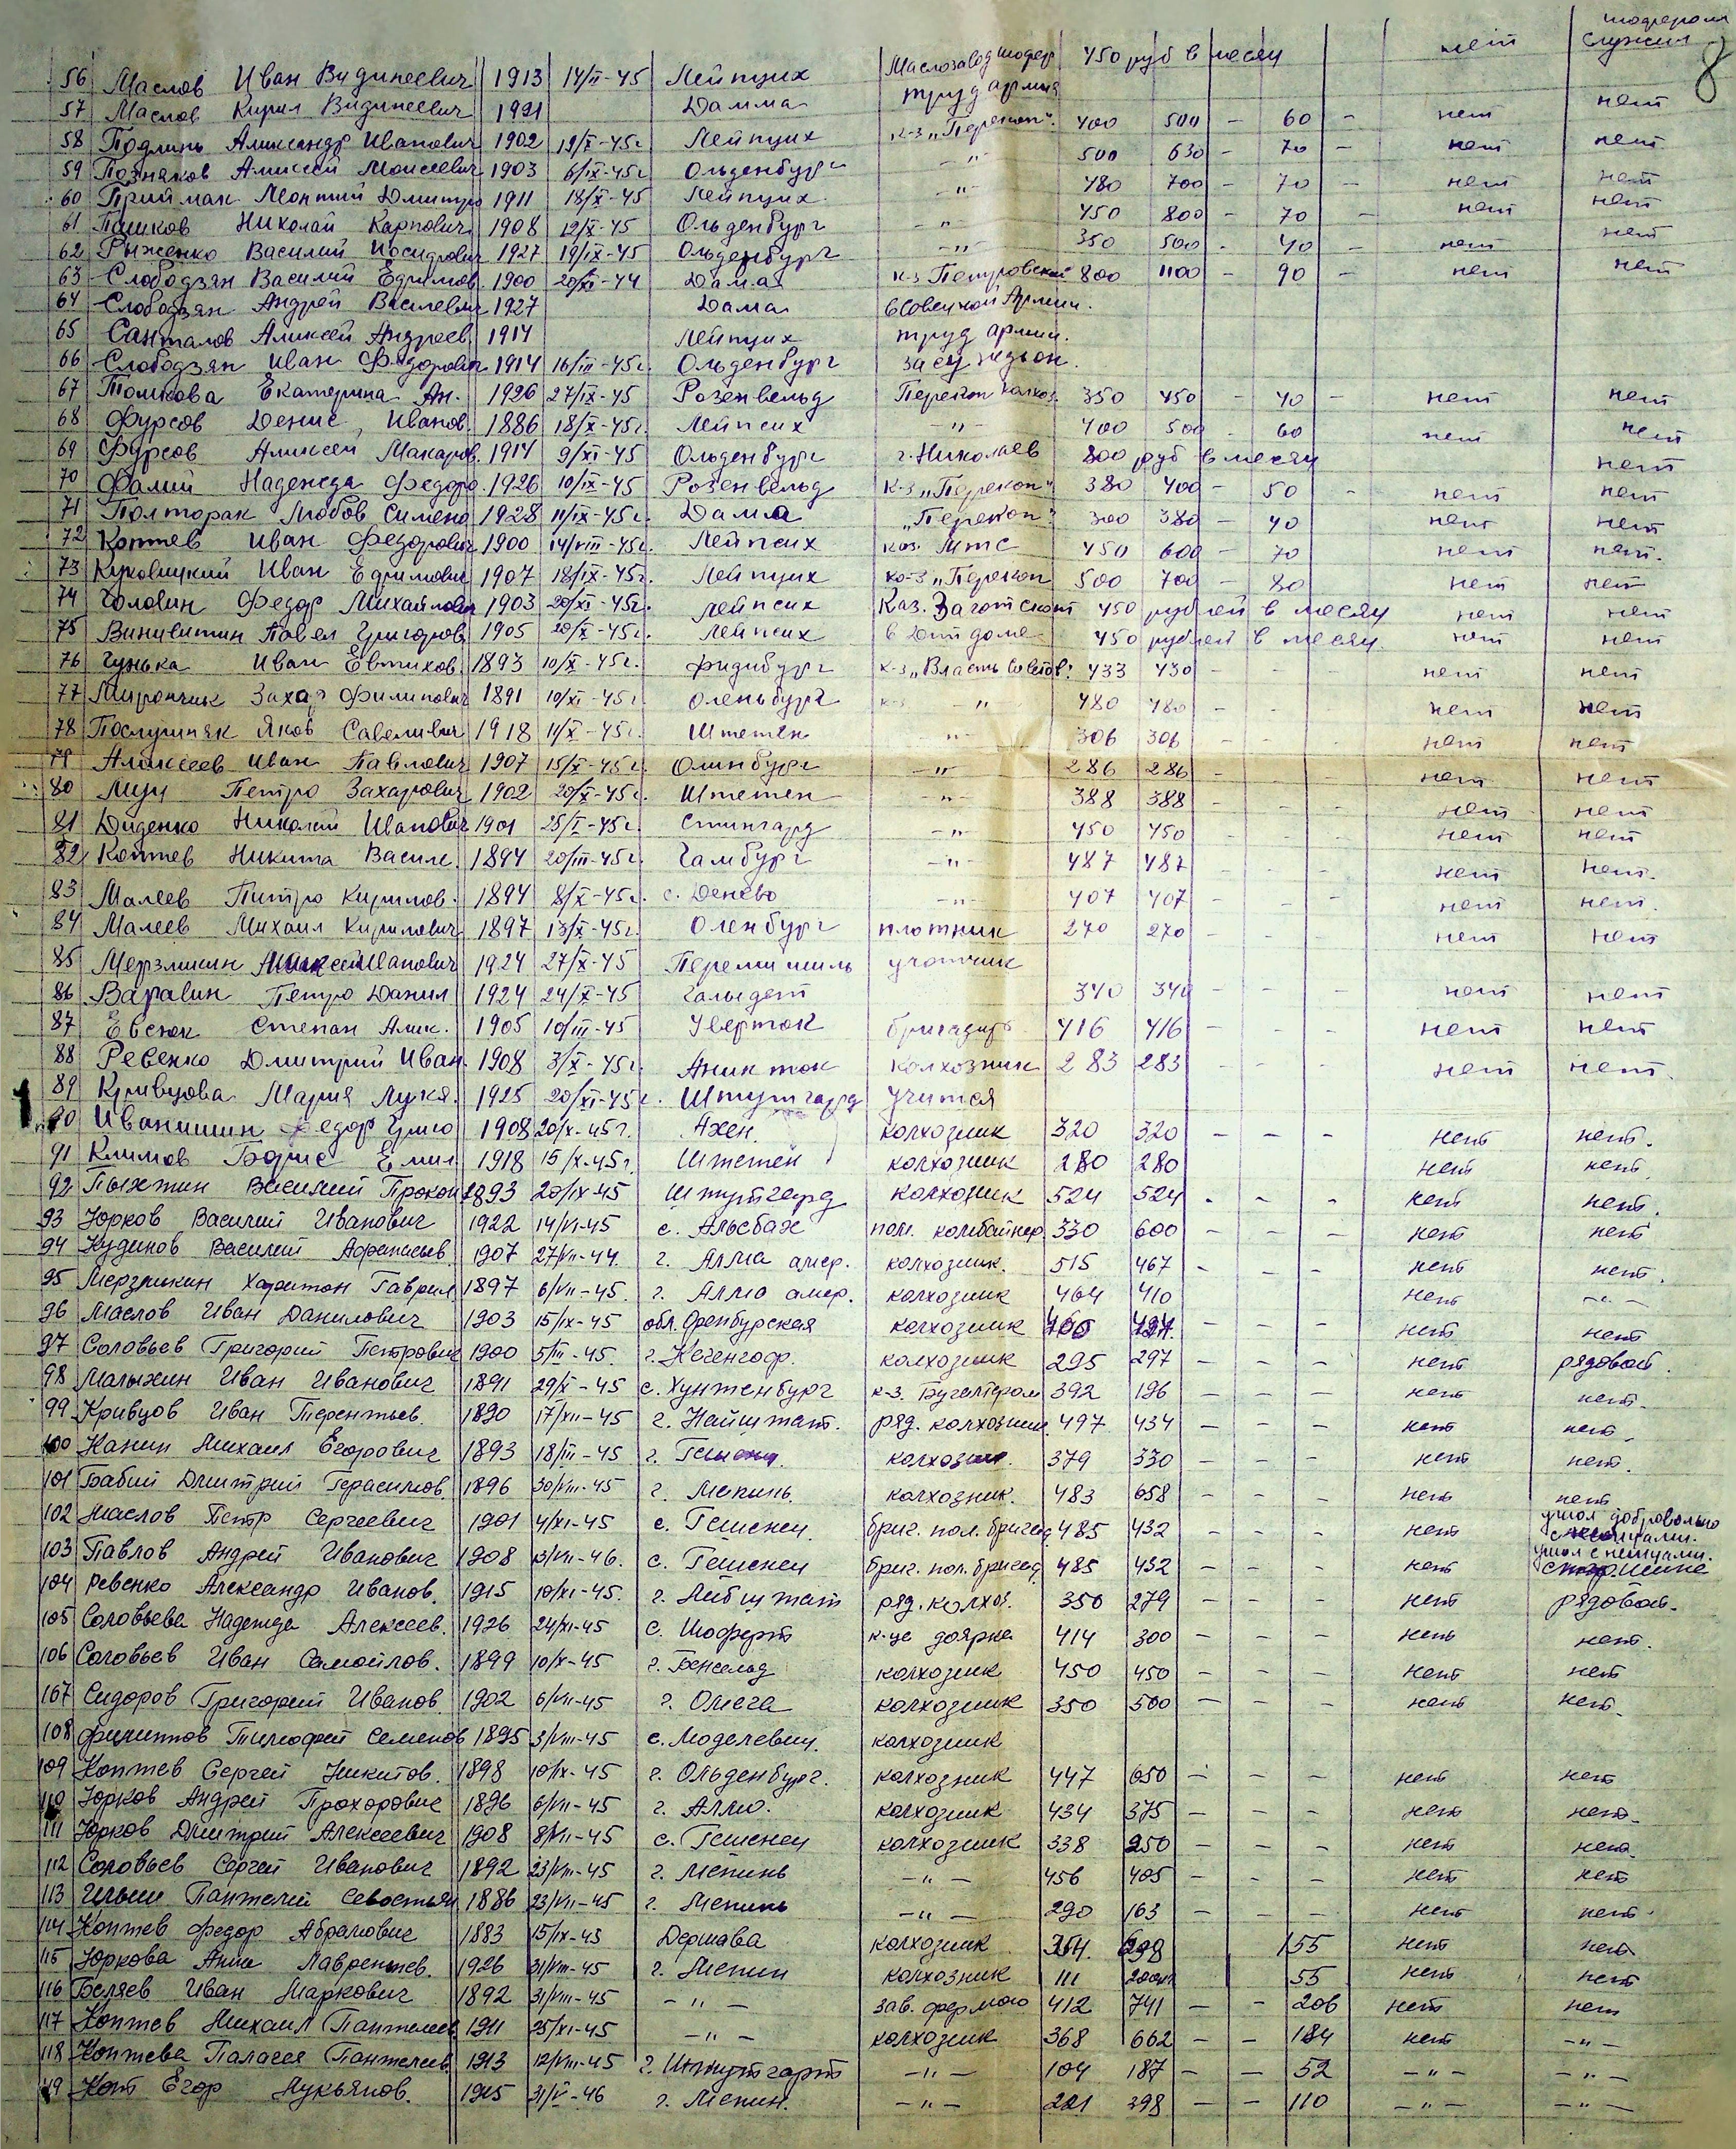 8
56 Маслов Иван Видинеевич 1913 14/II-45 Лейпциг Маслозавод шофер 450 руб в месяц нет шофером служил
57 Маслов Кирил Видинеевич 1921 Дамма труд армия нет
58 Подлинь Аликсандр Иванович 1902 12/X-45г Лейпциг к-з "Перекоп" 400 500 - 60 - нет нет
59 Позняков Аликсей Моисеевич 1903 6/IX-45г Ольденбург -"- 500 630 - 70 - нет нет
60 Приймак Леонтий Дмитри 1911 18/X-45 Лейпциг -"- 480 700 - 70 - нет нет
61 Пашков Николай Карпович 1908 12/X-45 Ольденбург " 450 800 - 70 - нет нет
62 Рыженко Василий Иосидович 1927 19/IX-45 Ольденбург -"- 350 500 - 40 - нет нет
63 Слободзян Василий Ефимов. 1900 20/XI-44 Дама к-з Петровский 800 1100 - 90 - нет нет
64 Слободзян Андрей Василевич 1927 Дама в Советской Армии.
65 Санталов Аликсей Андреев 1914 Лейпциг труд армии.
66 Слободзян Иван Федорович 1914 16/III-45г. Ольденбург
67 Толикова Екатерина Ан. 1926 27/IX-45 Розенвельд Перекоп колхоз 350 450 - 40 - нет нет
68 Фурсов Денис Иванов. 1886 18/X-45г. Лейпсих -"- 400 500 60 нет нет
69 Фурсов Аликсей Макаров. 1914 9/XI-45 Ольденбург г. Николаев 800 руб в месяц нет
70 Фалий Надежда Федоро. 1926 10/IX-45 Розенвельд к-з "Перекоп" 380 400 - 50 - нет нет
71 Полторак Любов Симено 1928 11/IX-45г. Дамма "Перекоп" 300 380 - 40 нет нет
72 Коптев Иван Федорович 1900 14/VIII-45г. Лейпсих каз. Мтс 450 600 - 70 нет нет.
73 Куковицкий Иван Ефимович 1907 18/IX-45г. Лейпциг ко-з "Перекоп 500 700 - 80 нет нет
74 Головин Федор Михайлович 1903 20/XI-45г. Лейпсих Каз. Заготскот 450 рублей в месяц нет нет
75 Винивитин Павел Григоров 1905 20/X-45г. Лейпсих в Дет доме 450 рублей в месяц. нет нет
76 Гунька Иван Евтихов. 1893 10/X-45г. Фридибург к-з "Власть Советов" 433 430 - - - нет нет
77 Мирончик Захар Филипович 1891 10/XI-45г. Оленьбург к-з -"- 480 480 - - - нет нет
78 Послушняк Яков Савеливич 1918 11/X-45г. Штетен " 306 306 - - - нет нет
79 Аликсеев Иван Павлович 1907 15/X-45г. Олинбург -"- 286 286 - - - нет нет
80 Лищ Петро Захарович 1902 20/X-45г. Штетен -"- 388 388 - - - нет нет
81 Диденко Николай Иванович 1901 25/X-45г. Стингард -"- 450 450 - - - нет нет
82 Коптев Никита Васил. 1894 20/III-45г. Гамбург -"- 487 487 - - - нет нет.
83 Малеев Питро Кирилов. 1894 8/X-45г. с. Денево -"- 407 407 - - - нет нет.
84 Малеев Михаил Кирилович 1897 13/X-45г. Оленбург плотник 270 270 - - - нет нет
85 Мерзликин Аликсей Иванович 1924 27/X-45 Перемишиль учотчик
86 Варавин Петро Данил 1924 24/X-45 Гальдет 340 340 - - - нет нет
87 Евсюк Степан Алик. 1905 10/III-45 Уверток бригадир 416 416 - - - нет нет
88 Ревенко Дмитрий Иван. 1908 3/X-45г. Аникток колхозник 283 283 - - - нет нет.
89 Кривцова Мария Лукя. 1925 20/XI-45г. Штутгард Учится
90 Иванишин Федор Григо 1908 20/X-45г. Ахен. колхозник 320 320 - - - нет нет.
91 Климов Борис Емил 1918 15/X-45г. Штетен колхозник 280 280 нет нет
92 Пыхтин Василий Прокоп 1893 20/IX-45 Штутгард колхозник 524 524 - - - нет нет.
93 Юрков Василий Иванович 1922 14/VI-45 с. Альсбах пом. комбайнер 330 600 - - - нет нет
94 Кудинов Василий Афанасьев. 1907 27/VII-44. г. Алма амер. колхозник. 515 467 - - - нет нет.
95 Мерзликин Харитон Гаврил 1897 6/VII-45. г. Алмо амер. колхозник 464 410 нет -"-
96 Маслов Иван Данилович 1903 15/IX-45 обл. Оренбурская колхозник 466 424. - - - нет нет
97 Соловьев Григорий Петрович 1900 5/III-45. г. Кегенгоф. колхозник 295 297 - - - нет рядовой.
98 Малыхин Иван Иванович 1891 29/X-45 с. Хунтенбург к-з. Бугалтером 392 196 - - - нет нет.
99 Кривцов Иван Терентьев. 1890 17/XII-45 г. Найштат. ряд. колхозник 497 434 - - - нет нет.
100 Канин Михаил Егорович 1893 18/III-45 г. Гешени. колхозник. 379 330 - - - нет нет.
101 Бабий Дмитрий Герасимов. 1896 30/VIII-45 г. Мепинь. колхозник. 483 658 - - - нет нет
102 Маслов Петр Сергеевич 1901 4/XI-45 с. Гешенеи бриг. пол. бригад. 485 432 - - - нет ушол добровольно с немцами.
103 Павлов Андрей Иванович 1908 13/VII-46. с. Гешенеи бриг. пол. бригад. 485 432 - - - нет ушол с немцами.
104 Ревенко Александр Иванов. 1915 10/XI-45. г. Либштат ряд. колхоз. 350 279 - - - нет рядовой.
105 Соловьева Надежда Алексеев. 1926 24/XI-45 с. Шоферт к-це доярка 414 300 - - - нет нет.
106 Соловьев Иван Самойлов. 1899 10/X-45 г. Бенсельд колхозник 450 450 - - - нет нет
107 Сидоров Григорий Иванов. 1902 6/VII-45 г. Омега колхозник 350 500 - - - нет нет.
108 Филиппов Тимофей Семенов 1895 3/VIII-45 с. Моделевиц. колхозник
109 Коптев Сергей Никитов. 1898 10/IX-45 г. Ольденбург. колхозник 447 650 - - - нет нет
110 Юрков Андрей Прохорович 1896 6/VII-45 г. Алмо. колхозник 434 375 - - - нет нет.
111 Юрков Дмитрий Алексеевич 1908 8/VII-45 с. Гешенеи колхозник 338 250 - - - нет нет.
112 Соловьев Сергей Иванович 1892 23/VIII-45 г. Мепинь -"- 456 405 - - - нет нет
113 Ильин Пантелий Севостьян 1886 23/VII-45 г. Мепинь -"- 290 163 - - - нет нет.
114 Коптев Федор Абрамович 1883 15/IX-45 Держава колхозник 354. 298 155 нет нет
115 Юркова Анна Лаврентьев. 1926 31/VIII-45 г. Мепин колхозник 111 200 55 нет нет
116 Беляев Иван Маркович 1892 31/VIII-45 -"- зав. фермою 412 741 - - 206 нет нет
117 Коптев Михаил Пантелеев 1911 25/XI-45 -"- колхозник 368 662 - - 184 нет -"-
118 Коптева Палагея Пантелеев. 1913 12/VIII-45 г. Штутгарт -"- 104 187 - - 52 -"- -"-
119 Кот Егор Лукьянов. 1915 31/V-46 г. Мепин. -"- 221 398 - - 110 -"- -"-